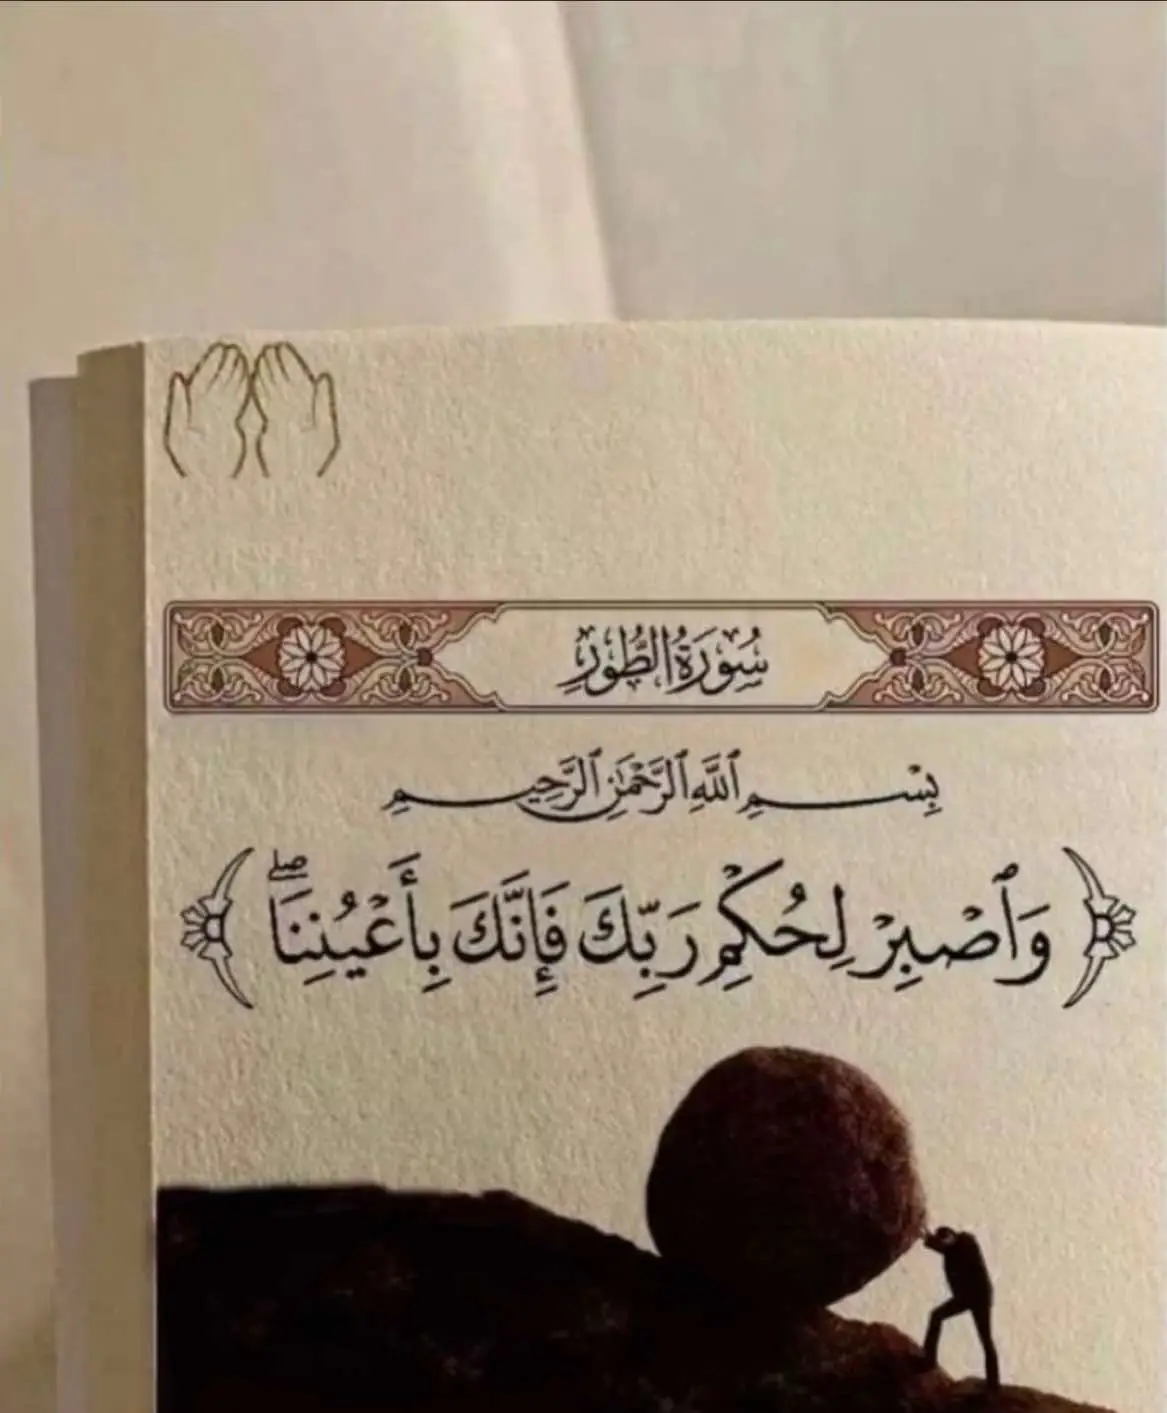 سُورَةُ الطُّورِ
بِسْمِ ٱللَّهِ ٱلرَّحْمَٰنِ ٱلرَّحِيمِ
﴿وَٱصْبِرْ لِحُكْمِ رَبِّكَ فَإِنَّكَ بِأَعْيُنِنَاۖ﴾